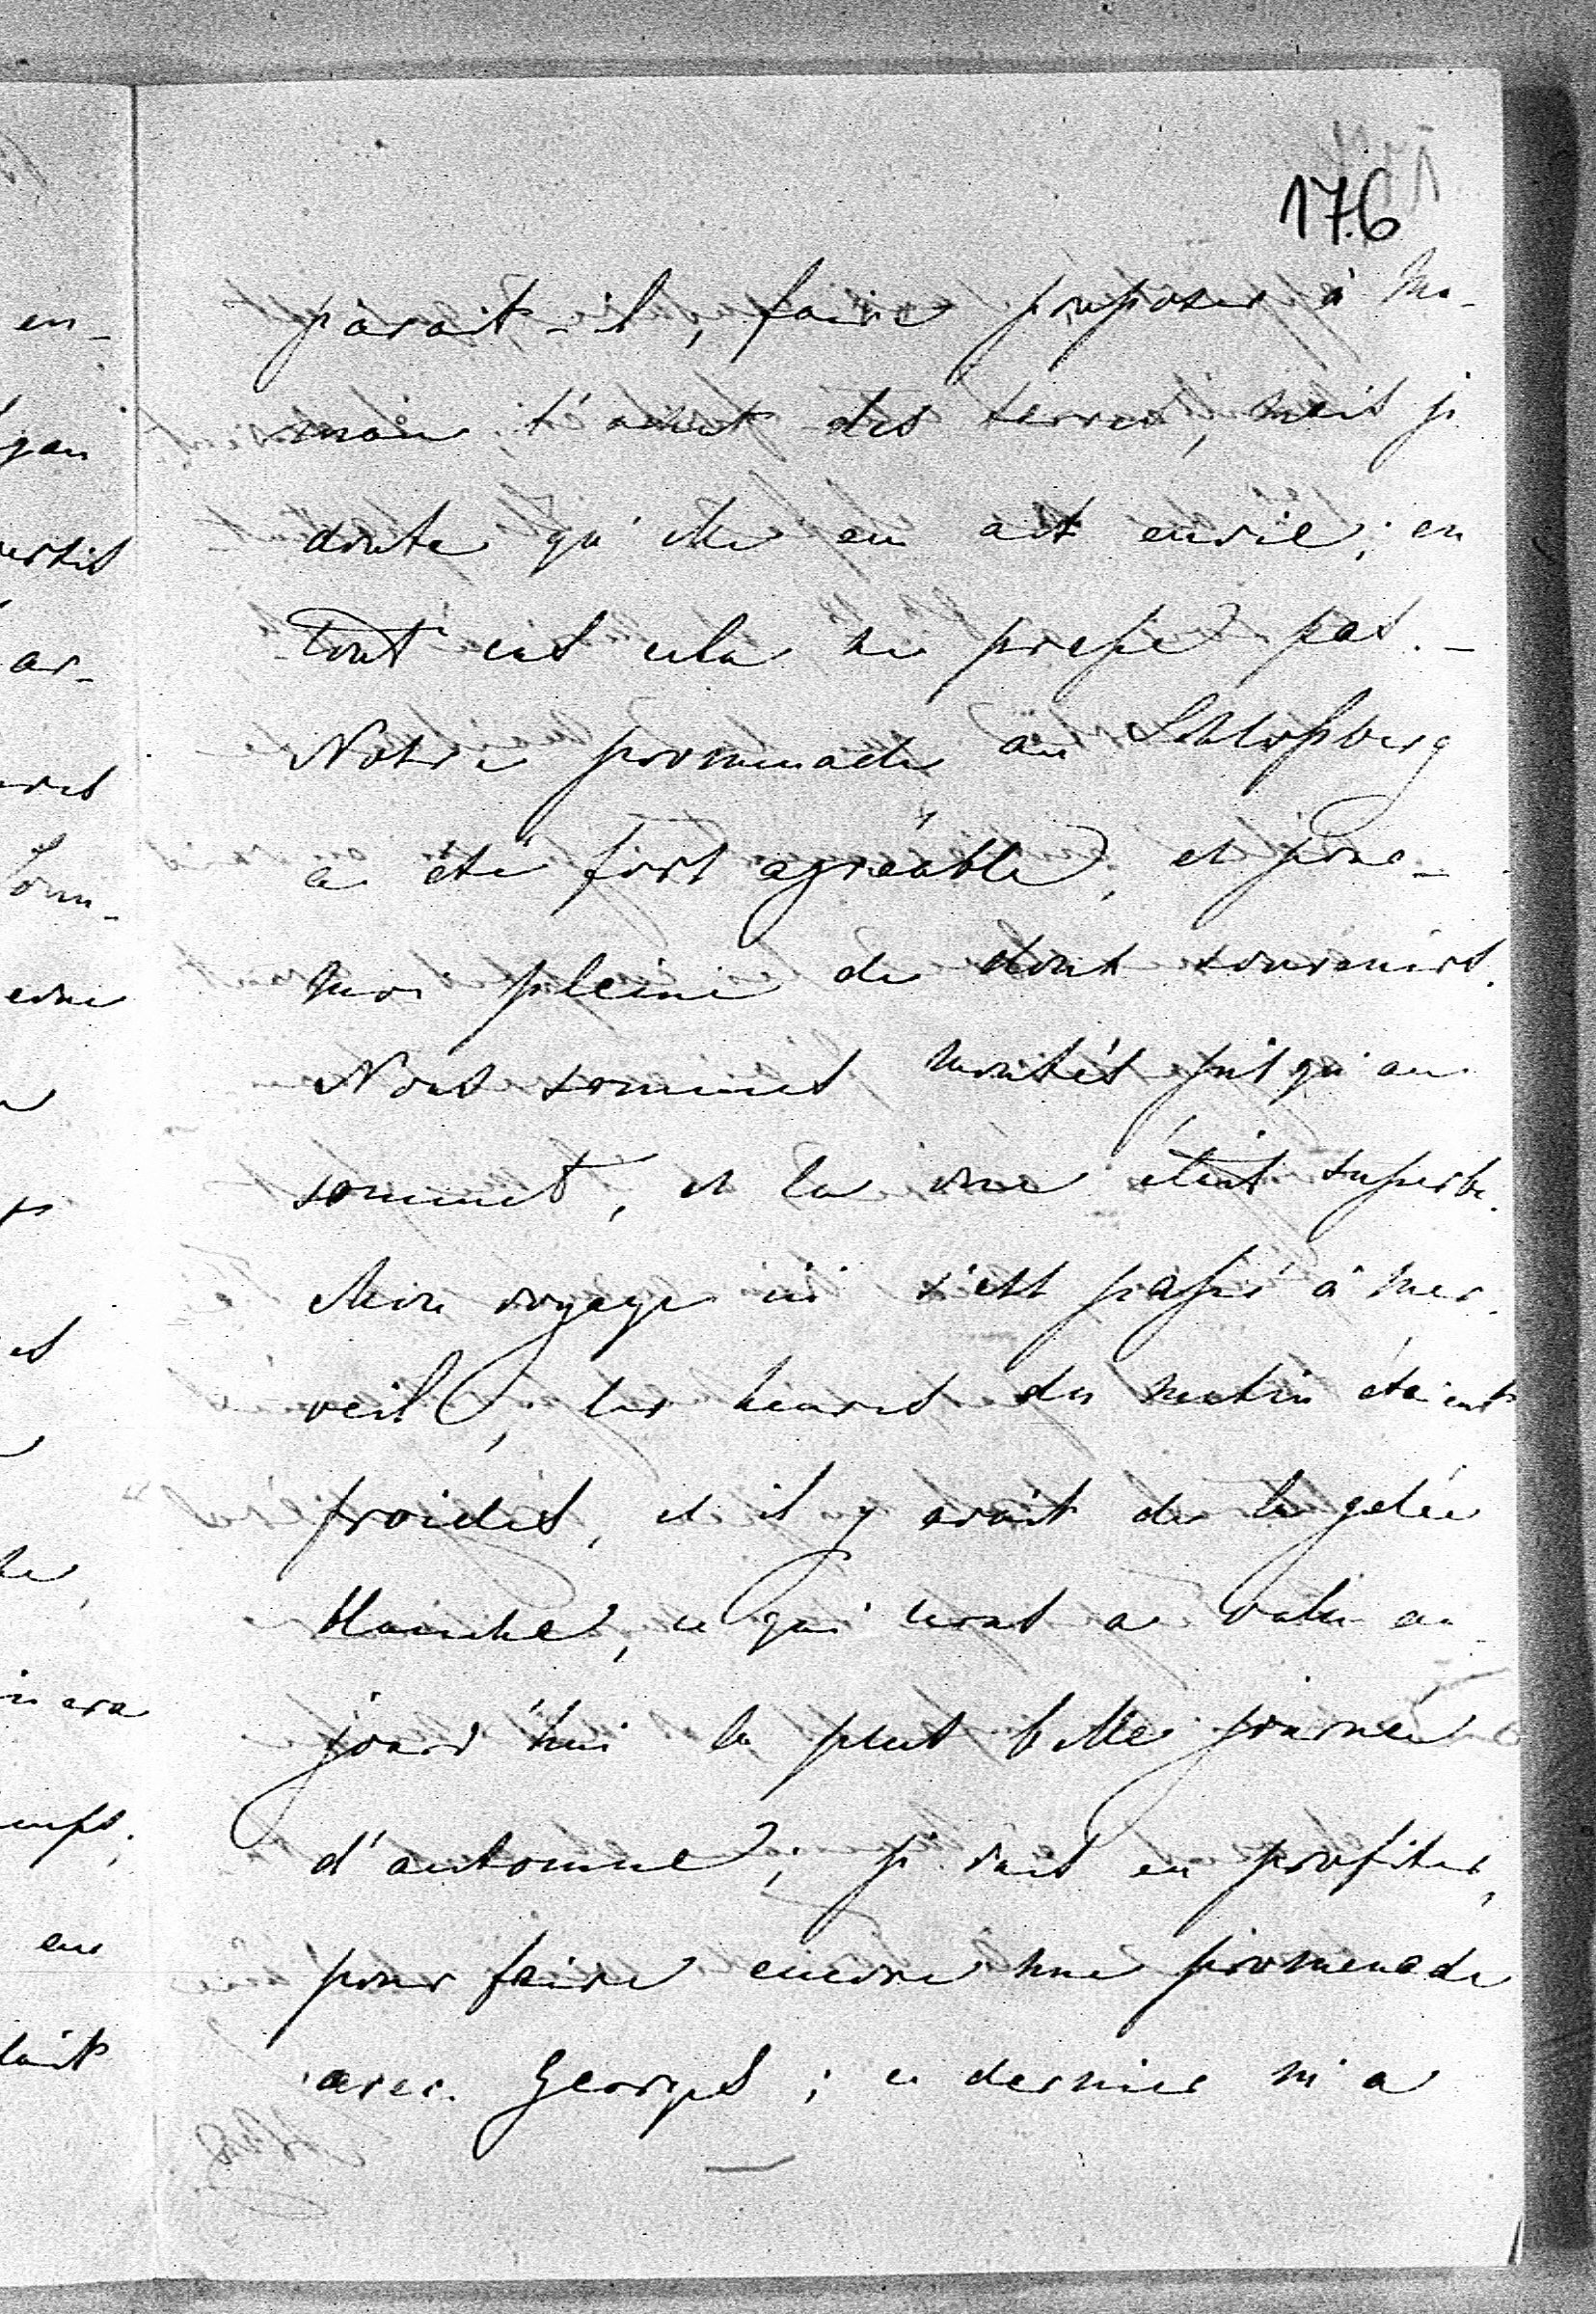 176
parait-il, faire proposer à Ma-
man l'achat des terres, mais je
doute qu'elle en ait envie; en
tout cas cela ne presse pas. —
Notre promenade au Schlossberg
a été fort agréable, et pour
moi pleine de doux souvenirs.
Nous sommes montés jusqu'au
sommet, et la vue était superbe.
Mon voyage ici s'est passé à mer-
veille, les heures du matin étaient
froides, et il y avait de la gelée
blanche, ce qui nous a valu au-
jourd'hui la plus belle journée
d'automne; je vais en profiter,
pour faire encore une promenade
avec Georges; ce dernier m'a